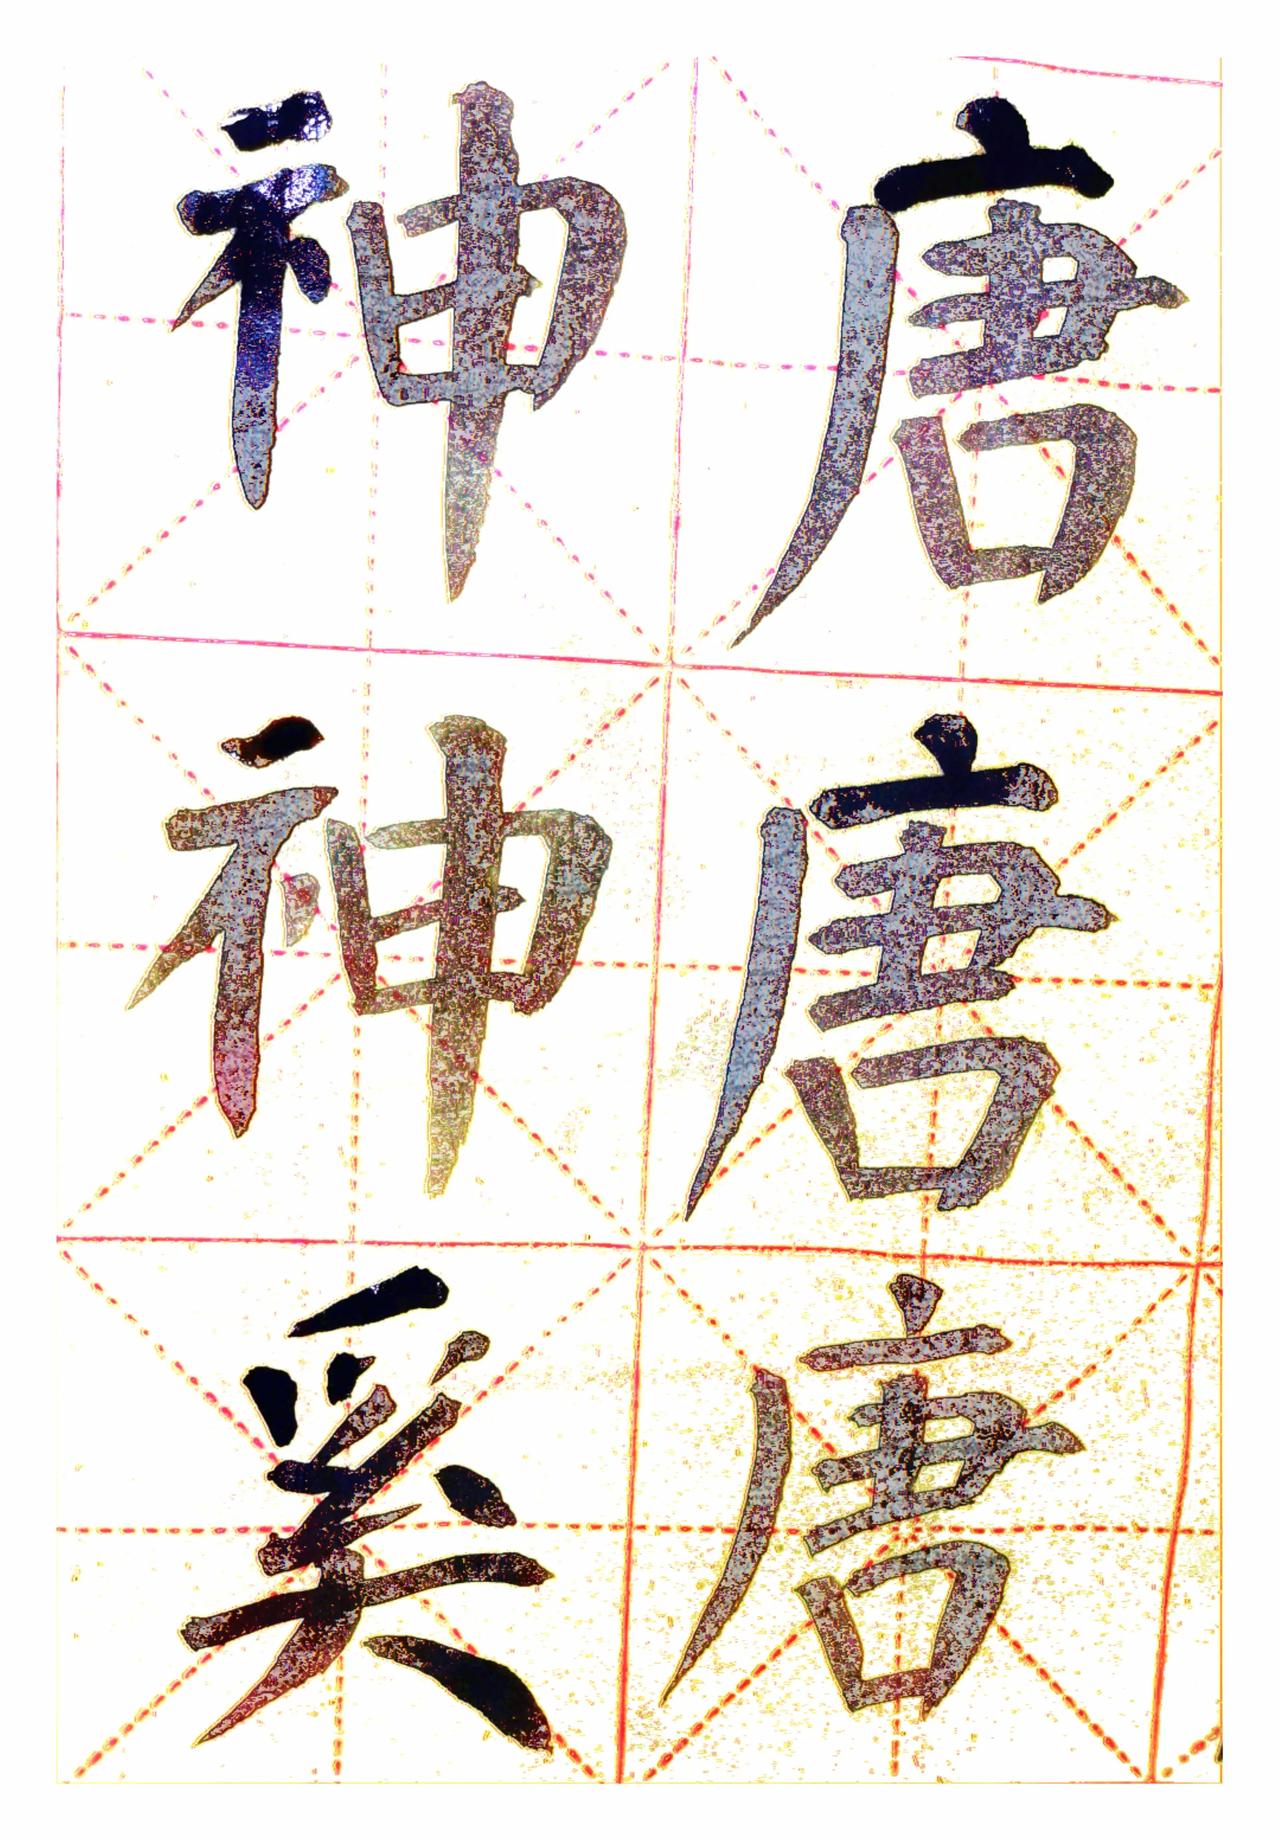 唐唐唐
神神奚